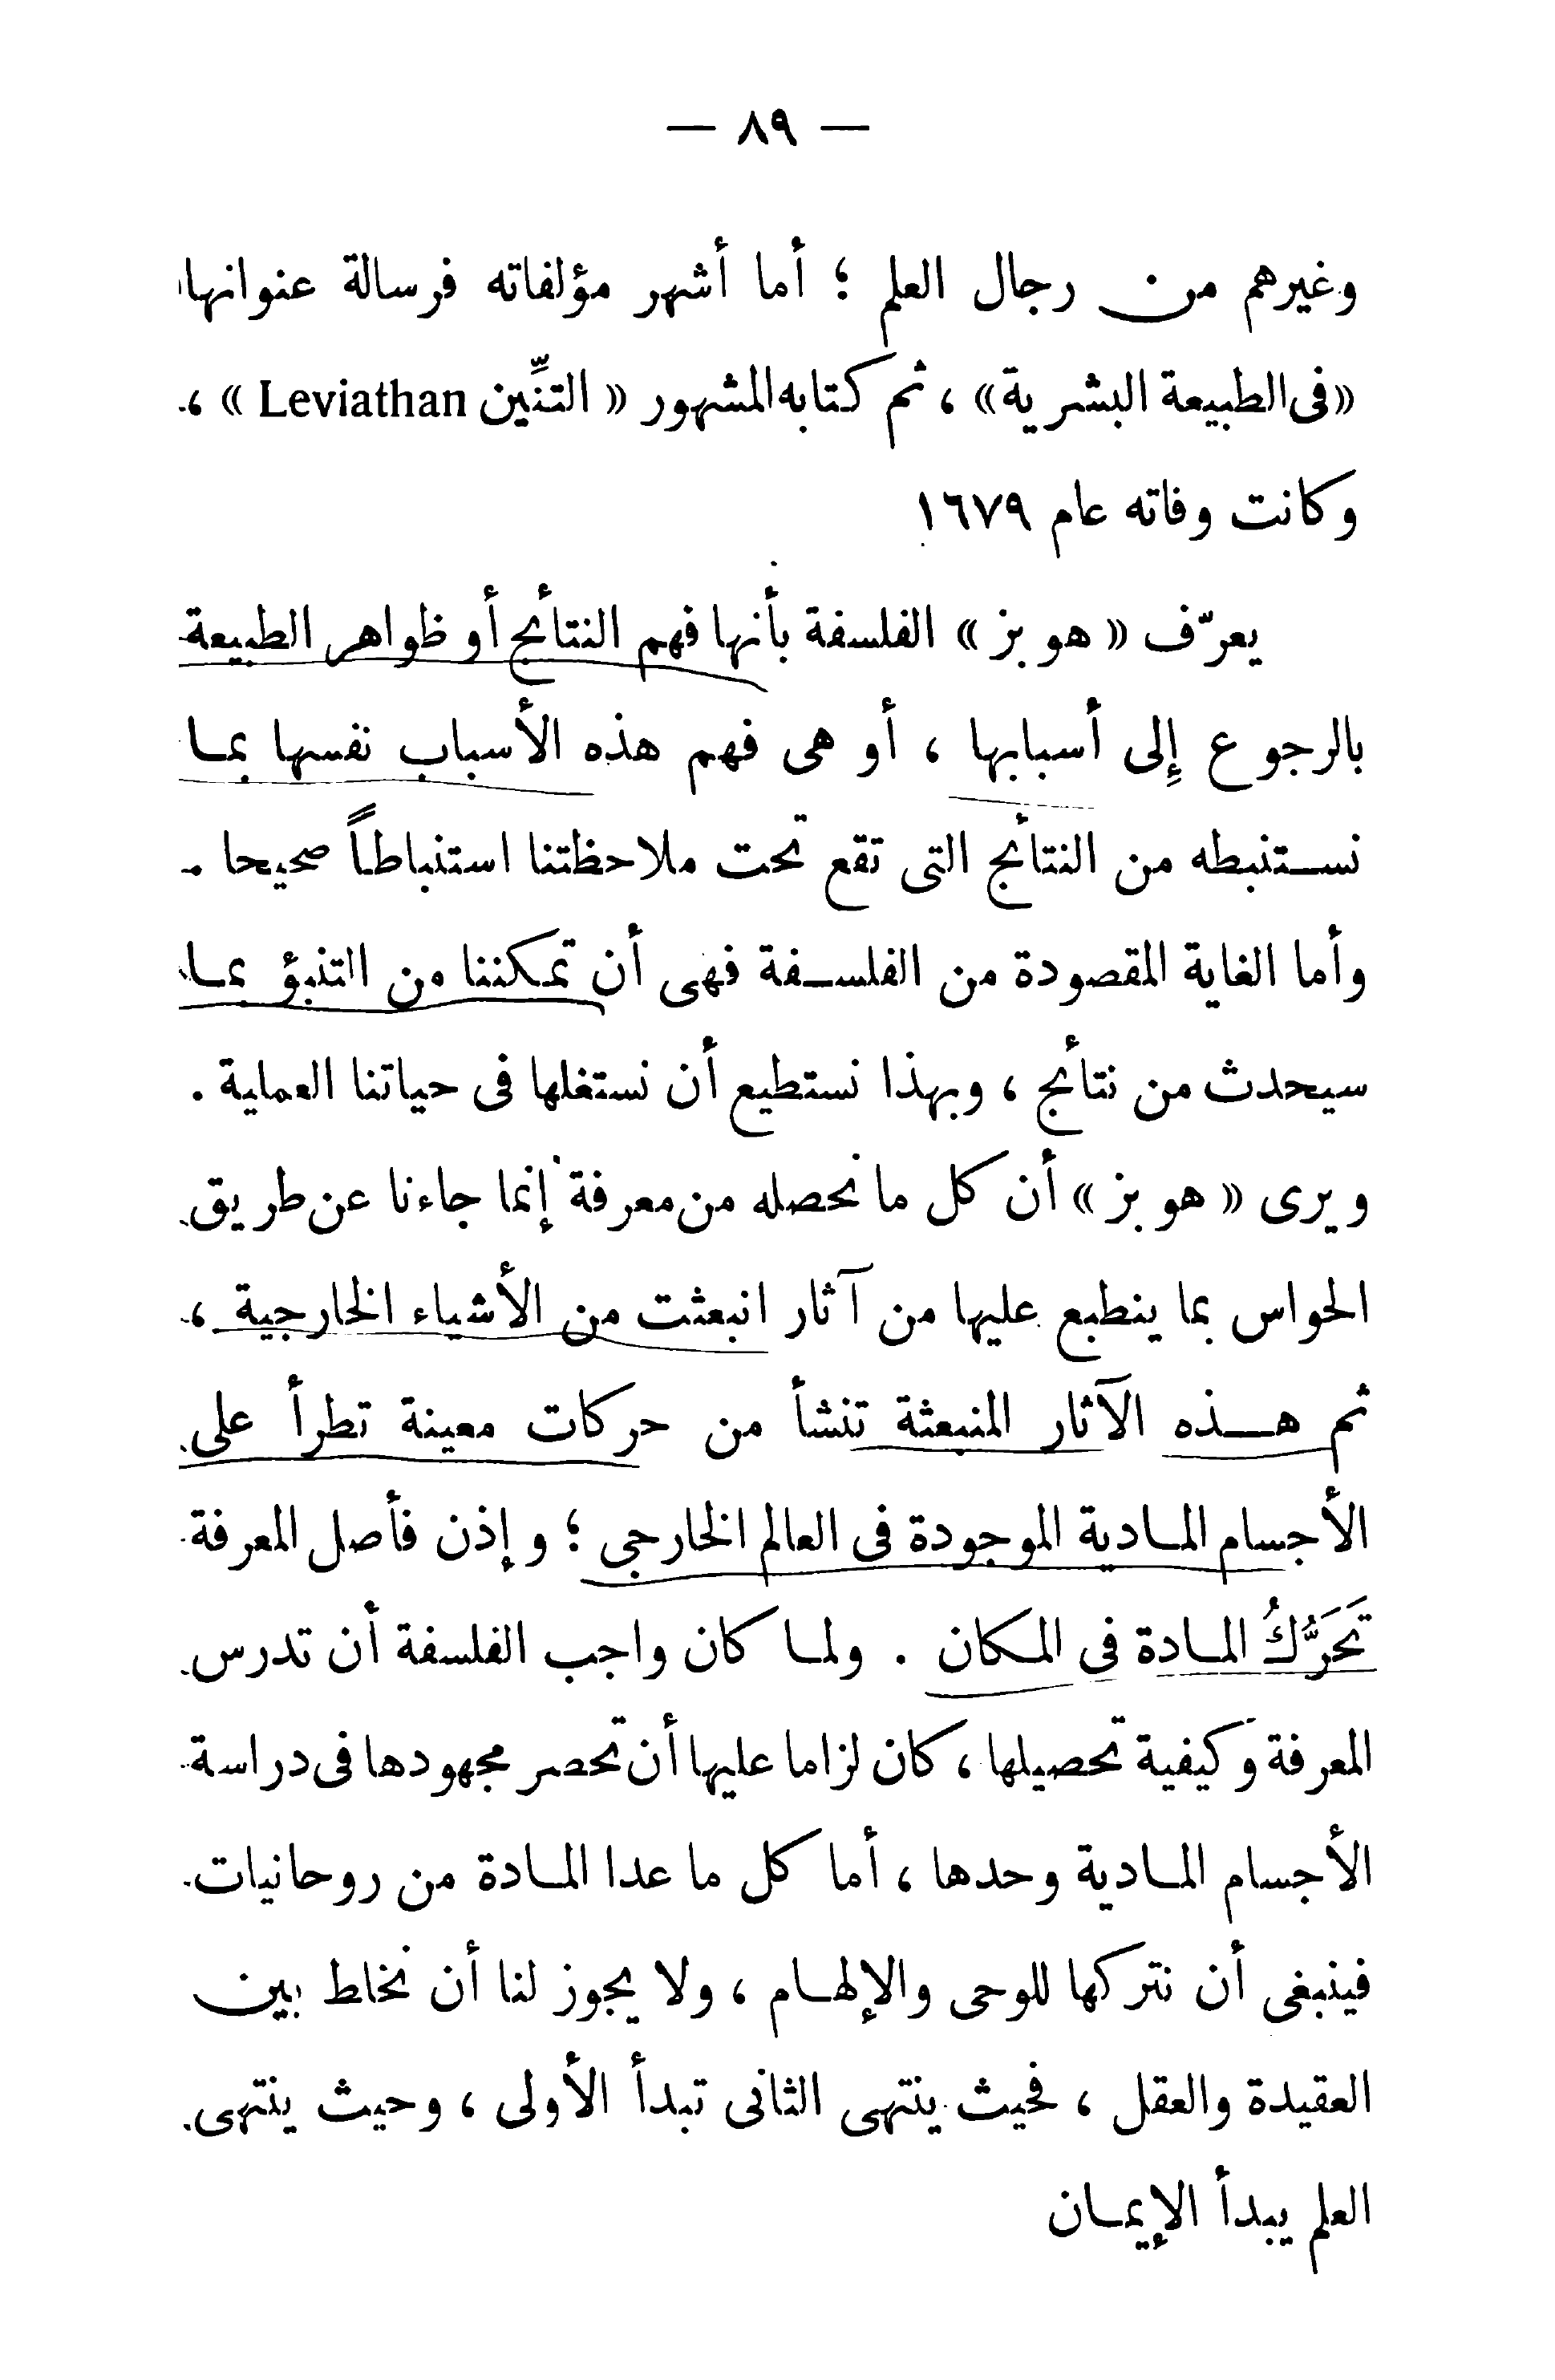 — ٨٩ —
وغيرهم من رجال العلم ؛ أما أشهر مؤلفاته فرسالة عنوانها
«فى الطبيعة البشرية» ، ثم كتابه المشهور « التنِّين Leviathan » ،
وكانت وفاته عام ١٦٧٩
يعرّف « هوبز » الفلسفة بأنها فهم النتائج أو ظواهر الطبيعة
بالرجوع إلى أسبابها ، أو هى فهم هذه الأسباب نفسها بمـا
نسـتنبطه من النتائج التى تقع تحت ملاحظتنا استنباطاً صحيحا .
وأما الغاية المقصودة من الفلسـفة فهى أن تمكننا من التنبؤ بمـا
سيحدث من نتائج ، وبهذا نستطيع أن نستغلها فى حياتنا العملية .
ويرى « هوبز » أن كل ما نحصله من معرفة إنما جاءنا عن طريق
الحواس بما ينطبع عليها من آثار انبعثت من الأشياء الخارجية ،
ثم هـذه الآثار المنبعثة تنشأ من حركات معينة تطرأ على
الأجسام المـادية الموجودة فى العالم الخارجى ؛ وإذن فأصل المعرفة
تَحَرُّكُ المـادة فى المكان . ولمـا كان واجب الفلسفة أن تدرس
المعرفة وكيفية تحصيلها ، كان لزاما عليها أن تحصر مجهودها فى دراسة
الأجسام المـادية وحدها ، أما كل ما عدا المـادة من روحانيات
فينبغى أن نتركها للوحى والإلهـام ، ولا يجوز لنا أن نخلط بين
العقيدة والعقل ، فحيث ينتهى الثانى تبدأ الأولى ، وحيث ينتهى
العلم يبدأ الإيمـان